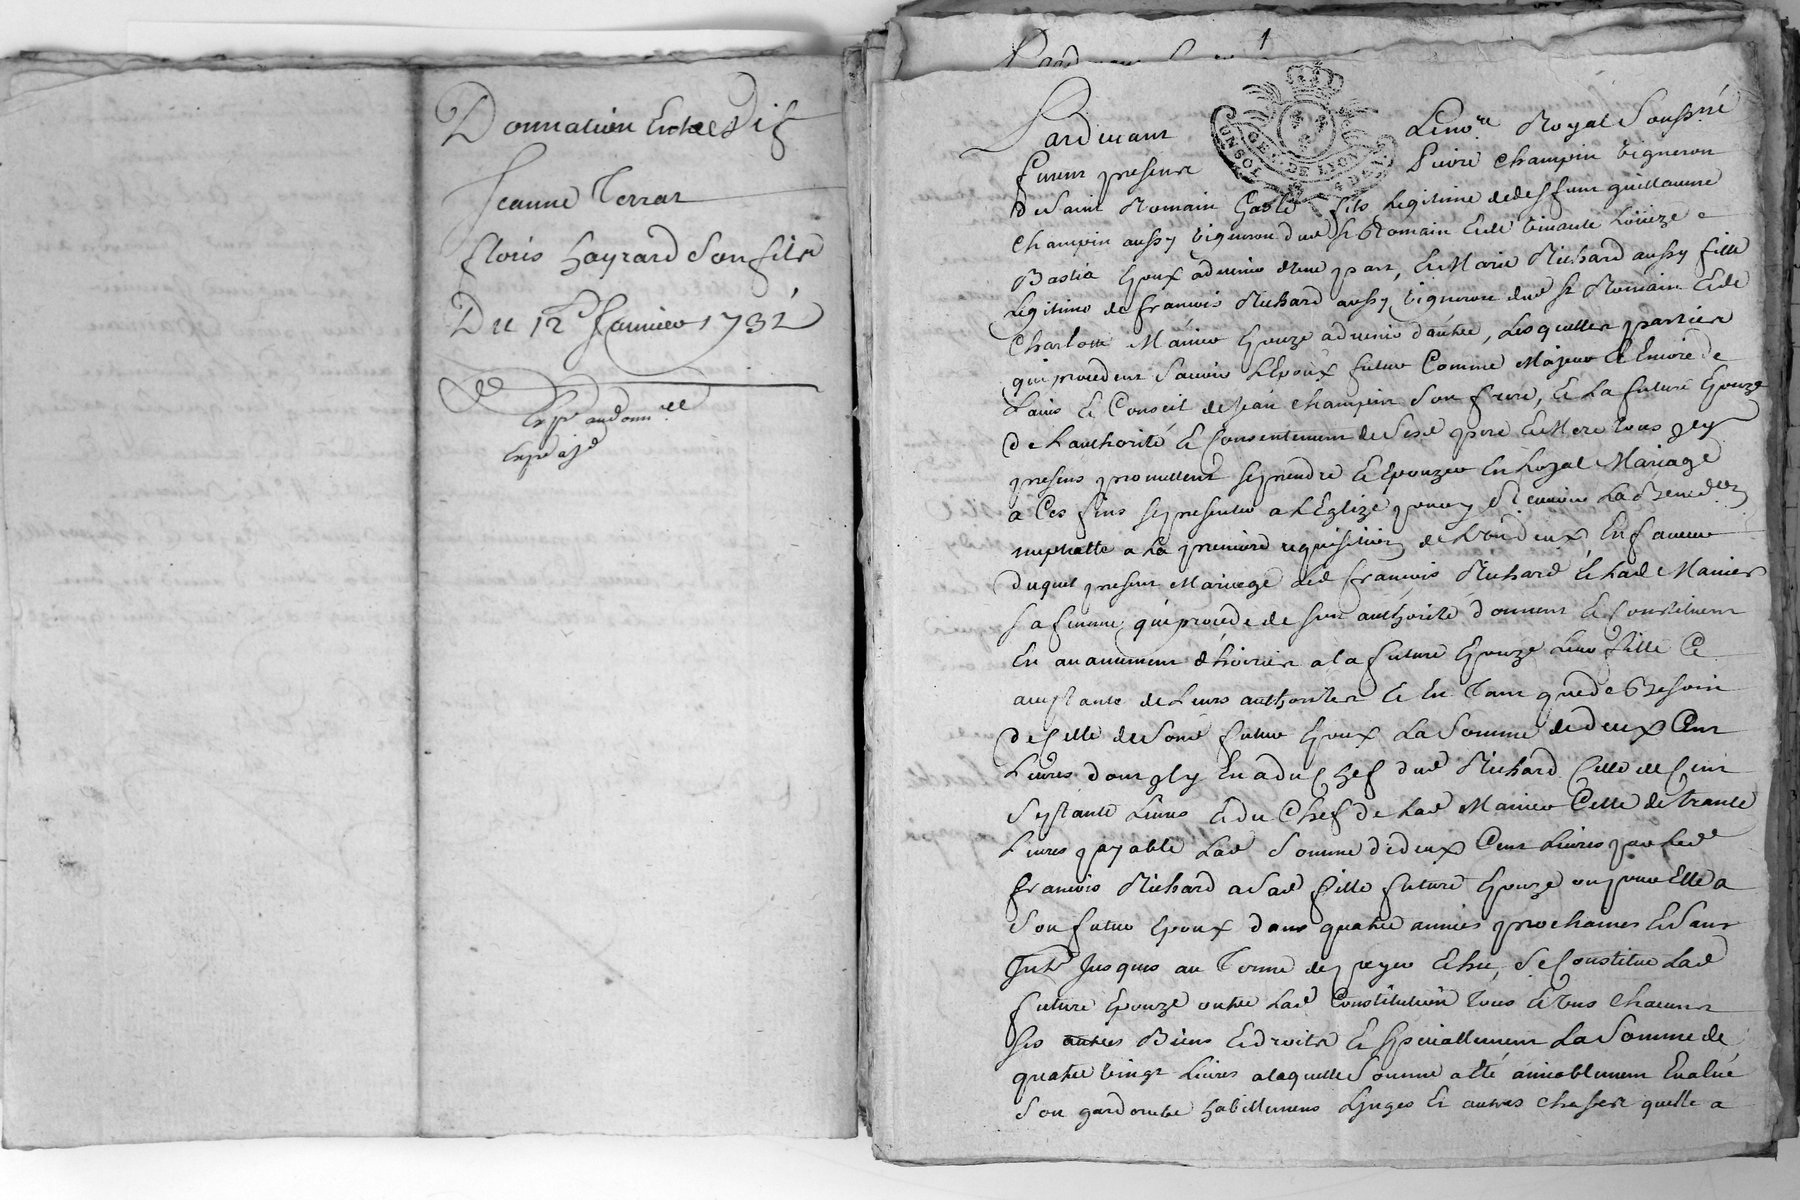 Donnation Entre Vifs
Jeanne Terrat
floris hayrard Son fils
Du 12e Janvier 1732
Expe
Expe
1
Pardevant Le nore Royal Soussné
furent presents Pierre Champin vigneron
de Saint Romain fils Legitime de deffunt guillaume
Champin aussy vigneron dud St Romain Et de vivante Loüize
Bastia Epoux advenir d'une part, Et Marie Richard aussy fille
Legitime de francois Richard aussy vigneron dud St Romain Et de
Charlotte Manier Epouze advenir d'autre, Lesquelles parties
qui procedent Scavoir L'Epoux futur Comme Majeur Et Encore de
L'avis Et Conseil de Jean Champin Son frere, Et La future Epouze
de L'authorité Et Consentement de Sesd pere Et Mere tous
presens promettent se prendre Et Epouzer En Loyal Mariage
a Ces fins se presenter a L'Eglize pour y Recevoir La Bened.on
nuptialle a La premiere requisition de L'un d'eux En faveur
duquel present Mariage led francois Richard Et Lad Manier
Sa femme qui procede de Son authorité donnent Et Constituent
En avancement d'hoirie a la future Epouze Leur fille Ce
acceptante de Leurs authorites Et En Tant que de Besoin
de Celle de Sond futur Epoux La Somme de deux Cent
Livres dont y En a du Chef dud Richard Celle de Cent
Septante Livres Et du Chef de Lad Manier Celle de trante
Livres payable Lad Somme de deux Cent Livres par Led
francois Richard a Sad fille future Epouze ou pour Elle a
Son futur Epoux dans quatre années prochaines Et Sans
Jusques au Terme de payer Echu, Se Constitue Lad
future Epouze outre Lad Constitution tous Et Uns Chacuns
Ses autres Biens Et droits Et Speciallement La Somme de
quatre vingt Livres a laquelle Somme a Eté amiablement Evalué
Son garderobe habillemens Linges Et autres Choses quelle a
CONSOL
GEN. DE LYON